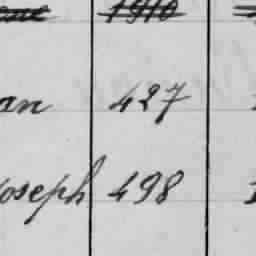 1910
an 427
oseph 498